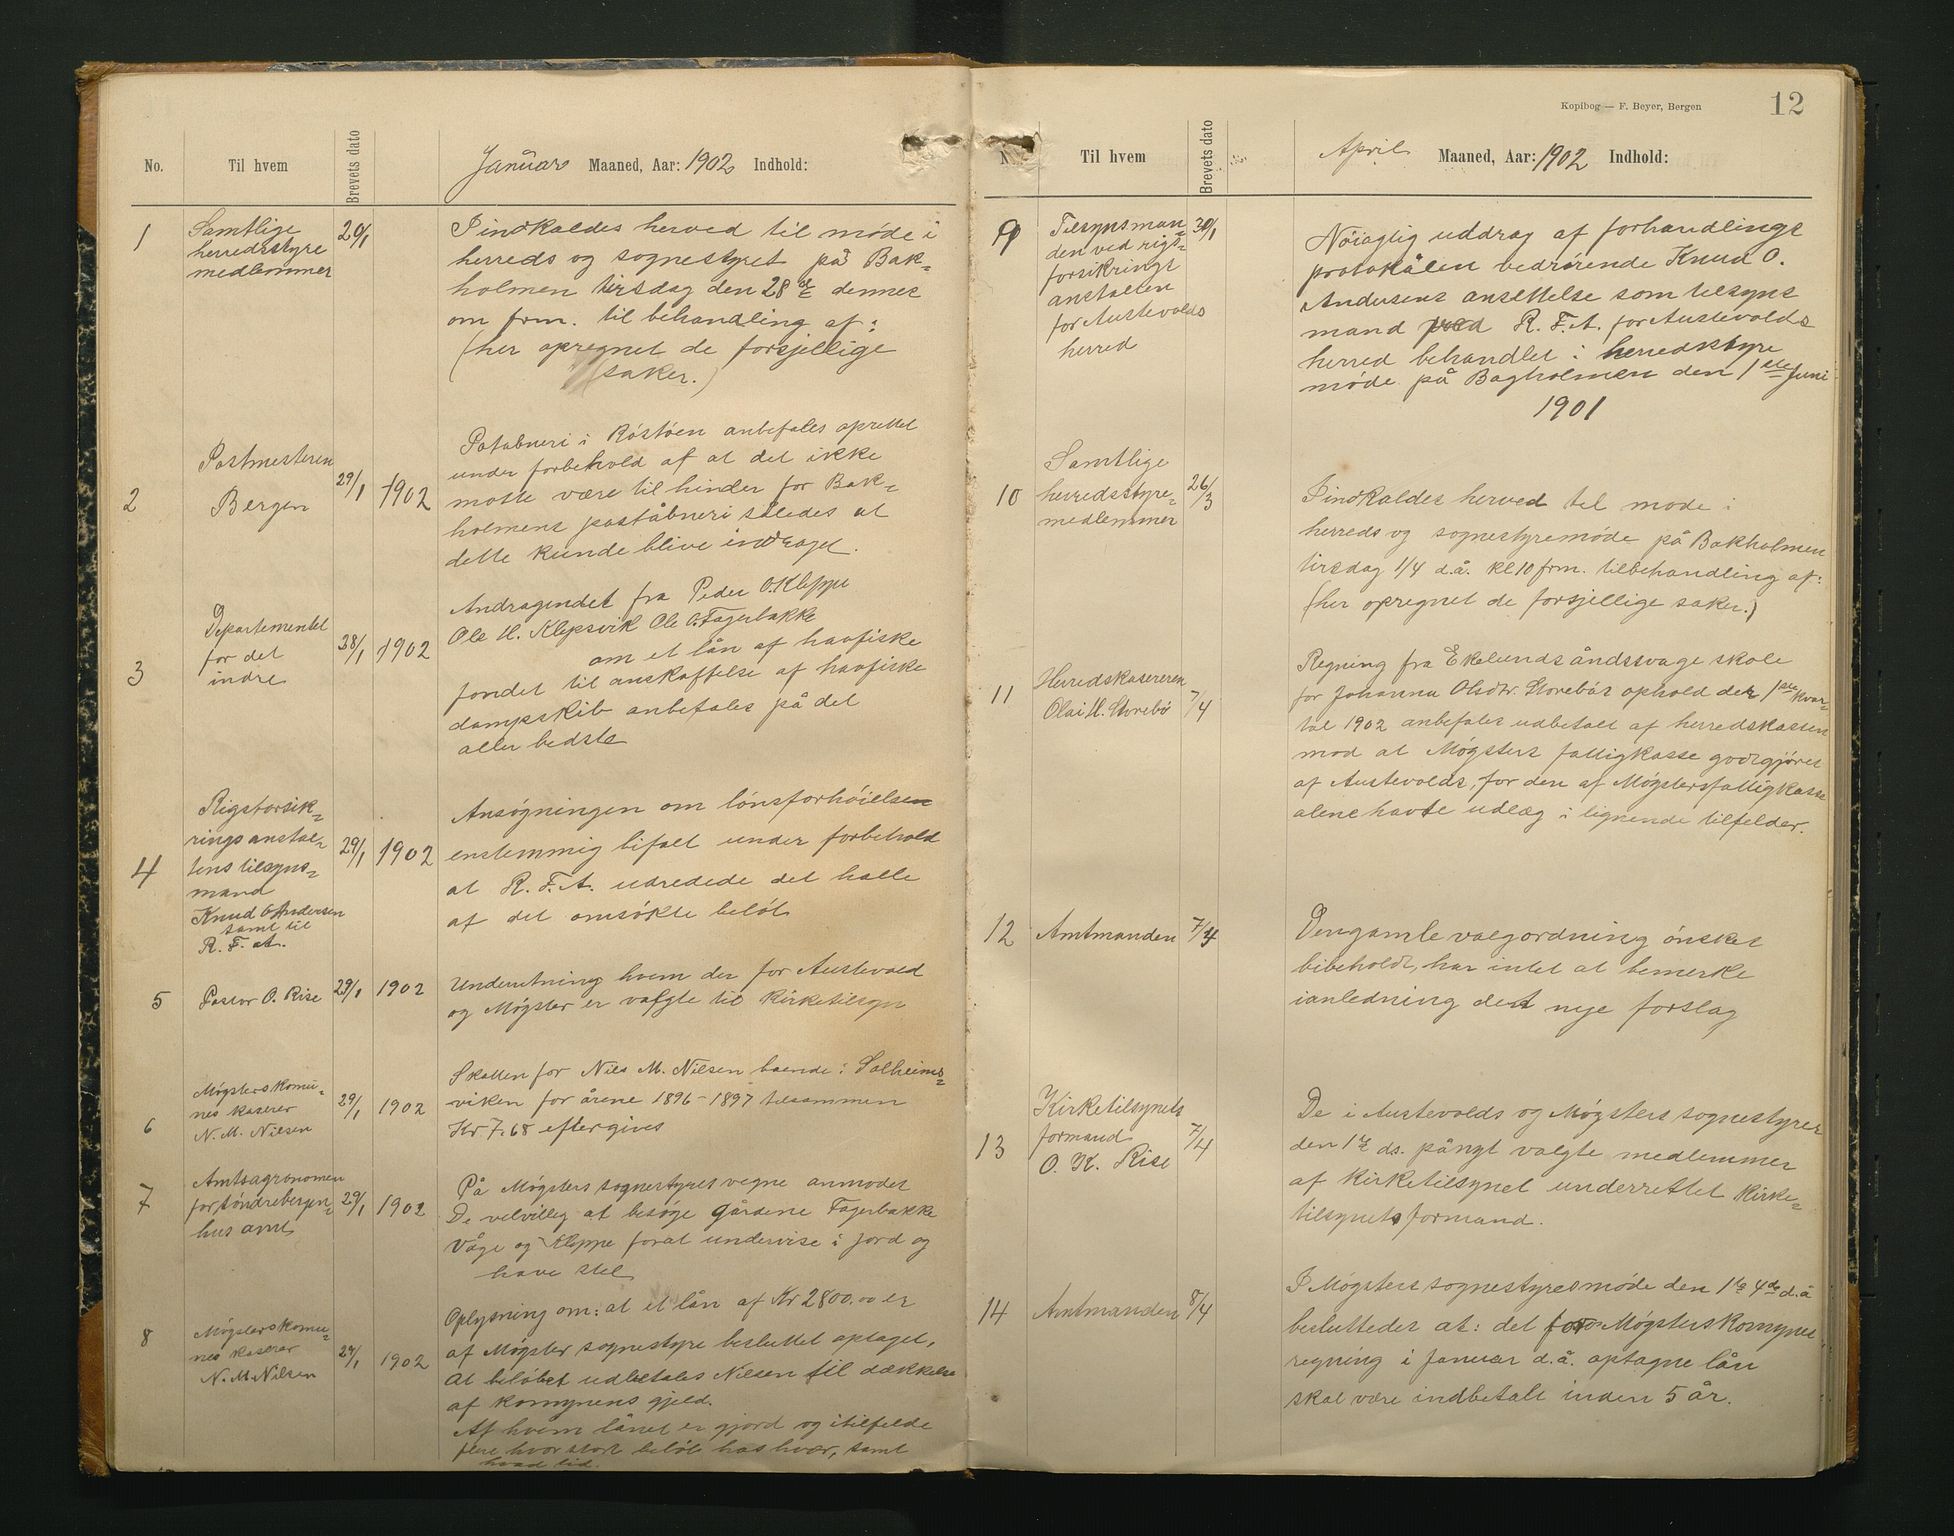 No.
Til hvem
Brevets dato
Januar Maaned, Aar: 1902 Indhold:
1
Samtlige
herredsstyre
medlemmer
20/1
I indkaldes herved til møde i
herreds og sognestyret på Bak-
holmen tirsdag den 28de dennes
om frm. til behandling af:
(her opregnet de forsjellige
saker.)
2
Postmesteren
Bergen
29/1
1902
Potabneri i Röstöen anbefales oprettet
under forbehold af at det ikke
motte være til hinder for Bak-
holmens poståbneri således at
dette kunde blive inddraget.
3
Departementet
for det
indre
28/1
1902
Andragendet fra Peder O. Kleppe
Ole H. Klepsvik Ole O. Fagerbakke
om et lån af havfiske
fondet til anskaffelse af havfiske
dampskib anbefales på det
aller bedste
4
Rigsforsik-
ringsanstal-
tens tilsyns-
mand
Knud O Andersen
samt til
R. F. A.
29/1
1902
Ansøgningen om lönsforhöielsen
enstemmig bifalt under forbehold
at R. F. A. udredede det halle
af det omsökte belöb
5
Pastor O. Rise
29/1
1902
Underretning hvem der for Austevold
og Møgster er valgte til Kirketilsyn
6
Møgsters komu-
nes kaserer
N. M. Nilsen
29/1
1902
Skatten for Nils M. Nilsen boende i Solheims-
viken for årene 1896-1897 tilsammen
Kr 7.68 eftergives
7
Amtsagronomen
for söndrebergen-
hus amt
29/1
1902
På Møgsters sognestyres vegne anmodes
De velvillig at besøge gårdene Fagerbakke
Våge og Kleppe forat undervise i jord og
have stel
8
Møgsters komu-
nes kaserer
N. M. Nilsen
29/1
1902
Oplysning om: at et lån af Kr 2800.00 er
af Møgster sognestyre besluttet optaget,
at beløbet udbetales Nilsen til dækkelse
af komynens gjeld.
Af hvem lånet er gjord og itilfelde
flere hvor stort beløb hos hvær, samt
hvad tid.
Kopibog — F. Beyer, Bergen
12
Til hvem
Brevets dato
April Maaned, Aar: 1902 Indhold:
9
Tilsynsman-
den ved rigs-
forsikrings
anstalten
for Austevolds
herred
30/1
Nöiagtig uddrag af forhandlings
protokålen vedrörende Knud O.
Andersens ansettelse som tilsyns
mand R. F. A. for Austevolds
herred behandlet i herredstyre
møde på Bagholmen den 1ste Juni
1901
10
Samtlige
herredsstyre-
medlemmer
26/3
I indkaldes herved til mode i
herreds og sognestyremøde på Bakholmen
tirsdag 1/4 d.å. kl 10 frm. tilbehandling af:
(her opregnet de forsjellige saker.)
11
Herredskasereren
Olai H. Storebö
7/4
Regning fra Ekelunds åndssvage skole
for Johanna Olsdtr. Storebös ophold der 1ste kvar-
tal 1902 anbefales udbetalt af herredskassen
mod at Møgsters fattigkasse godtgjöres
af Austevolds, for den af Møgstersfattigkasse
alene havte udlæg i lignende tilfelder.
12
Amtmanden
7/4
Dengamle valgordning önskes
bibeholdt, har intet at bemerke
ianledning det nye forslag
13
Kirketilsynets
formand
O. K. Rise
7/4
De i Austevolds og Møgsters sognestyrer
den 1ste ds. pånyt valgte medlemmer
af Kirketilsynet underrettet Kirke-
tilsynets formand.
14
Amtmanden
8/4
I Møgsters sognestyresmøde den 1ste 4de d.å
besluttedes at: det for Møgsters Komynes
regning i Januar d.å. optagne lån
skal være indbetalt inden 5 år.